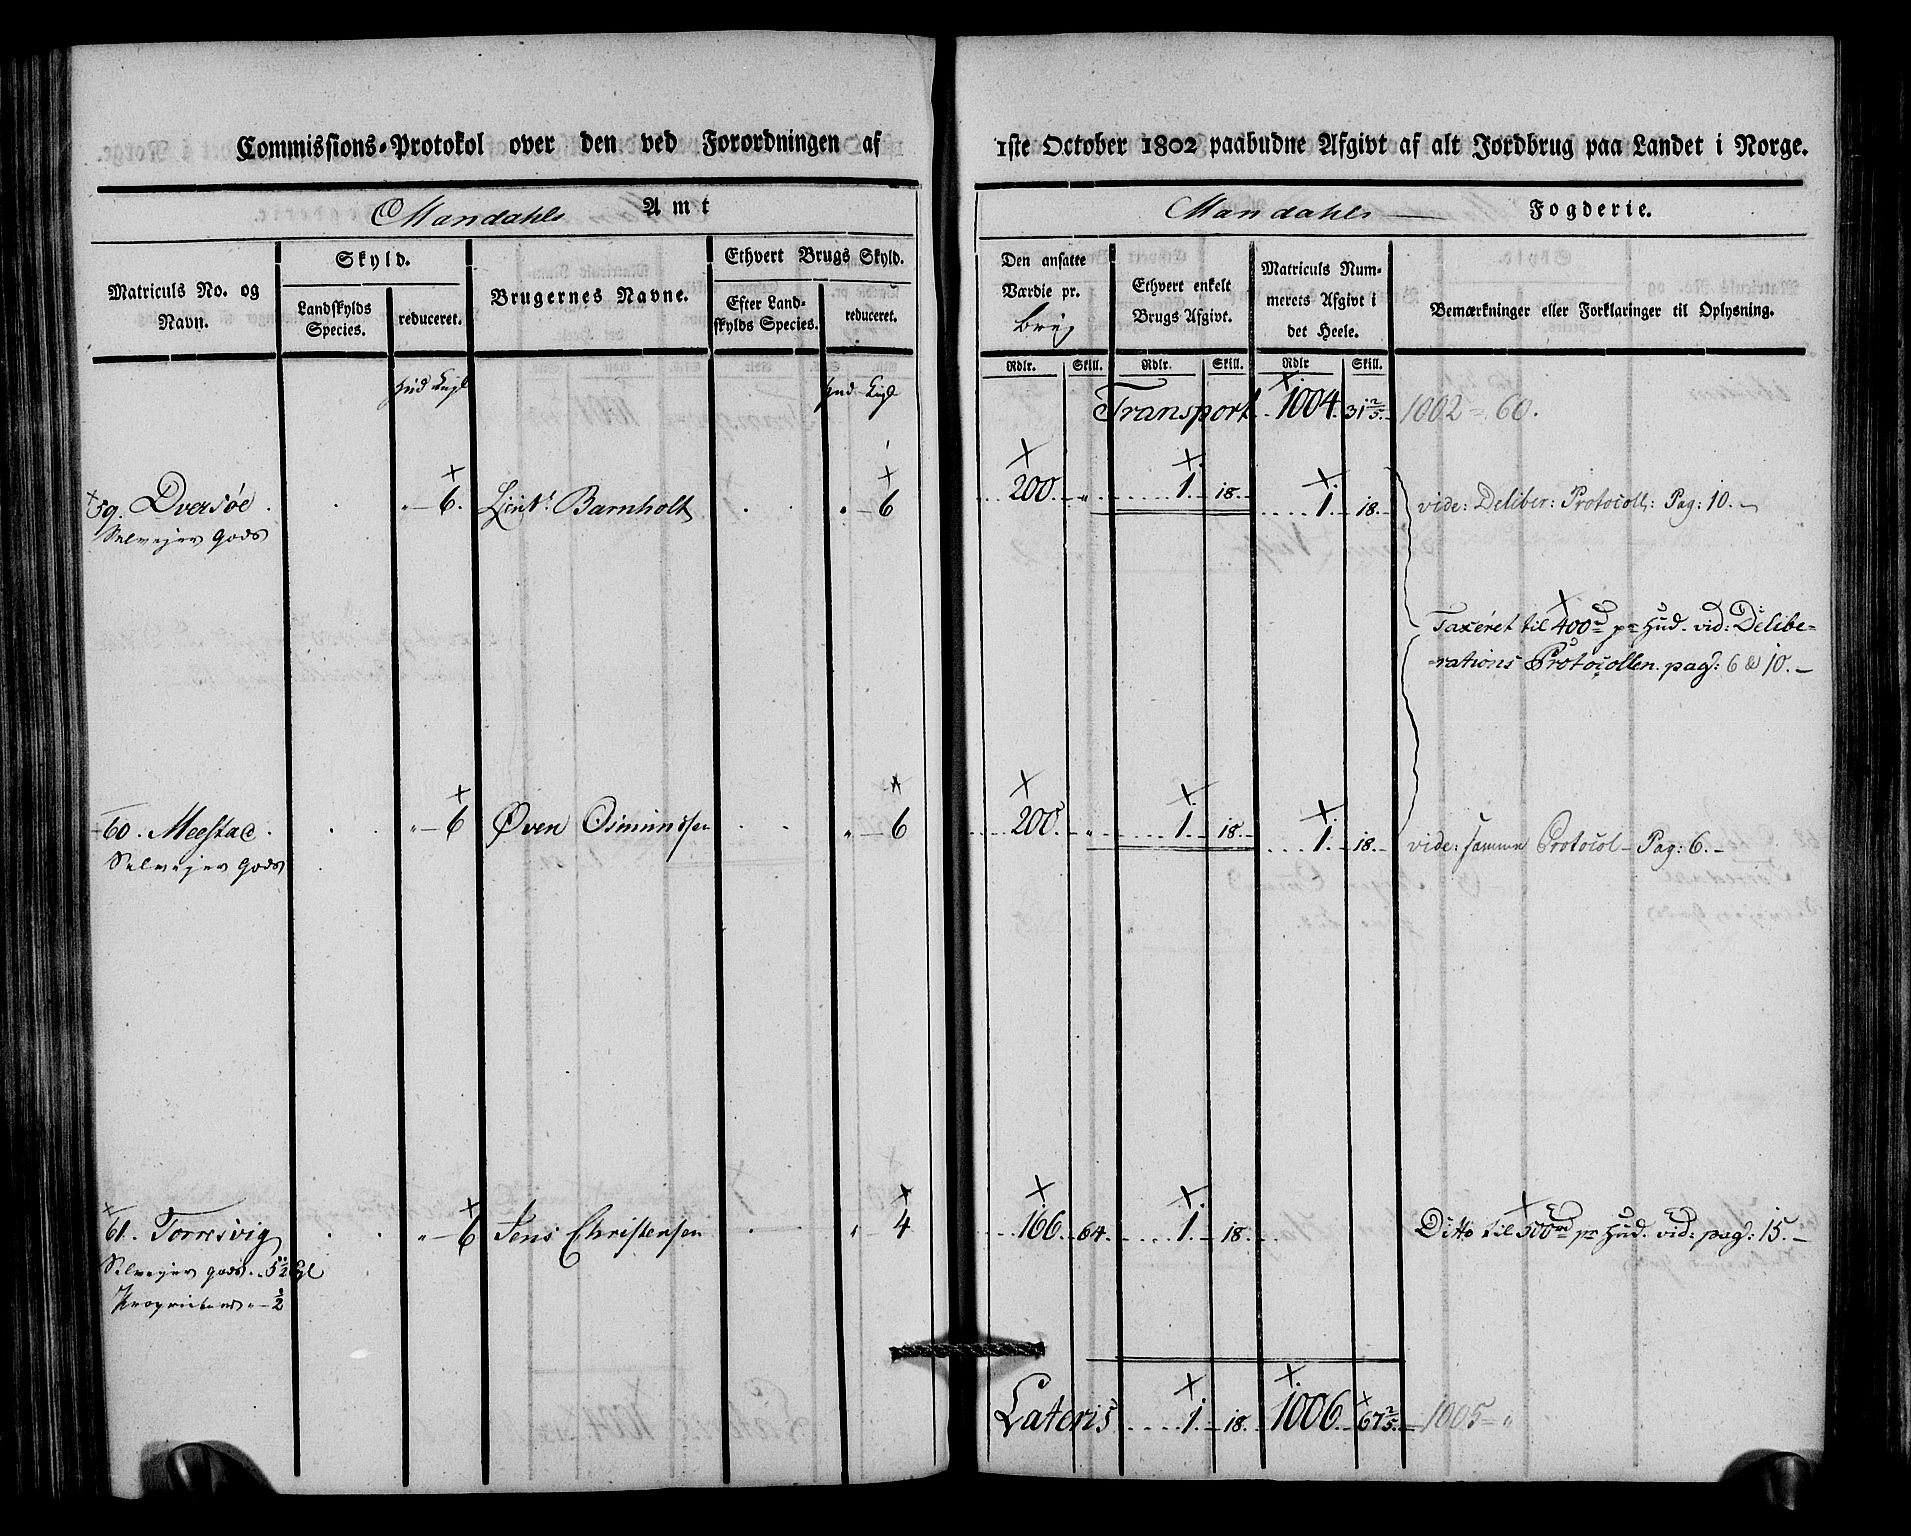 Commissions-Protokol over den ved Forordningen af 1ste October 1802 paabudne Afgivt af alt Jordbrug paa Landet i Norge.
Mandahls Amt
Mandahls Fogderie.
Matriculs No. og Navn.
Skyld.
Landskylds Species.
reduceret.
Brugernes Navne.
Ethvert Brugs Skyld.
Efter Landskylds Species.
reduceret.
Den ansatte Værdie pr. brug
Ethvert enkelt Brugs Afgivt.
Matriculs Nummerets Afgivt i det Heele.
Bemærkninger eller Forklaringer til Oplysning.
Rdlr. Skill. Rdlr. Skill. Rdlr Skill.
Hud Engl Hud Engl
Transport 1004. 31 2/5 1002 = 60.
59. Dversøe. " 6. Lieut. Barnholt " 6 200. " 1. 18. 1. 18. vide: Deliber: Protocoll: Pag: 10.
Selvejer Gods
Taxeret til 400 rd pr Hud. vid: Delibe-
-rations Protocollen. pag: 6 & 10.
60. Meestad. " 6 Øven Osmundsen " 6 200. " 1. 18. 1. 18. vide: samme Protocol Pag: 6.
Selvejer Gods
61. Torresvig " 6 Jens Christensen " 4 166. 64. 1. 18. Ditto til 500 rd pr Hud. vid: pag: 15.
Selvejer gods. 5 1/2 Egl
Proprietair " 1/2
Lateris 1. 18. 1006. 67 2/5 1005 = "